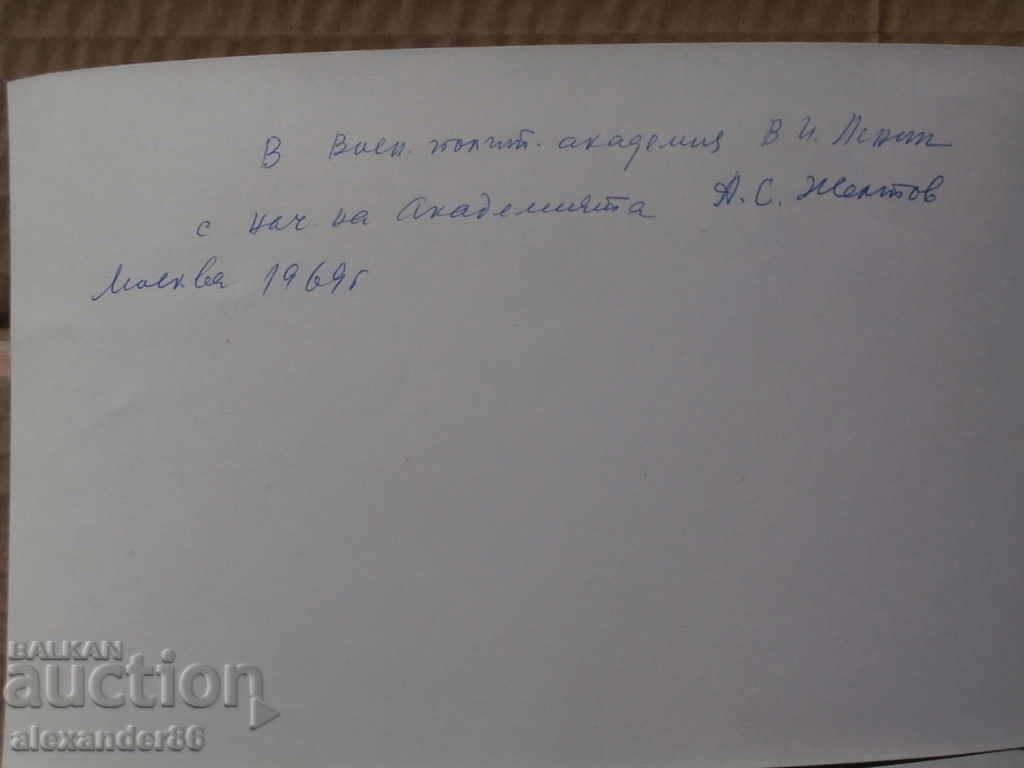 В Воен. полит. академия В И Ленин
с нач. на Академията А. С. Желтов
Москва 1969г
BALKAN
auction
alexander86